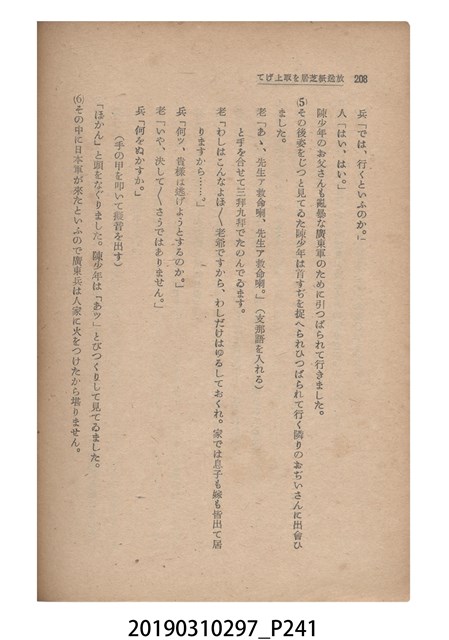 放送紙芝居を取上げて
208
兵「では、行くといふのか。」
人「はい、はい。」
陳少年のお父さんも亂暴な廣東軍のために引つぱられて行きました。
(5)その後姿をじつと見てゐた陳少年は首すぢを捉へられひつぱられて行く隣りのおぢいさんに出會ひ
ました。
老「あゝ、先生ア救命喇、先生ア救命喇。」(支那語を入れる)
と手を合せて三拜九拜でたのんでゐます。
老「わしはこんなよぼ〱老爺ですから、わしだけはゆるしておくれ。家では息子も嫁も皆出て居
りますから……。」
兵「何ッ、貴樣は逃げようとするのか。」
老「いや、決して〱さうではありません。」
兵「何をぬかすか。」
(手の甲を叩いて擬音を出す)
「ぽかん」と頭をなぐりました。陳少年は「あッ」とびつくりして見てゐました。
(6)その中に日本軍が來たといふので廣東兵は人家に火をつけたから堪りません。
20190310297_P241